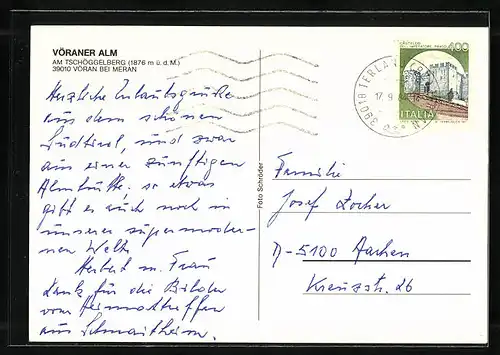 VÖRANER ALM
AM TSCHÖGGELBERG (1876 m ü. d. M.)
39010 VÖRAN BEI MERAN
Herzliche Urlaubsgrüße
aus dem schönen
Südtirol, und zwar
aus einer zünftigen
Almhütte; so etwas
gibt es auch noch in
unserer supermoder-
nen Welt.
Herbert u. Frau
Dank für die Bilder
vom Heimattreffen
aus
Foto Schröder
400
ITALIA
39018 TERLAN
17.9
Familie
Josef Locher
D-5100 Aachen
Kreuzstr. 26